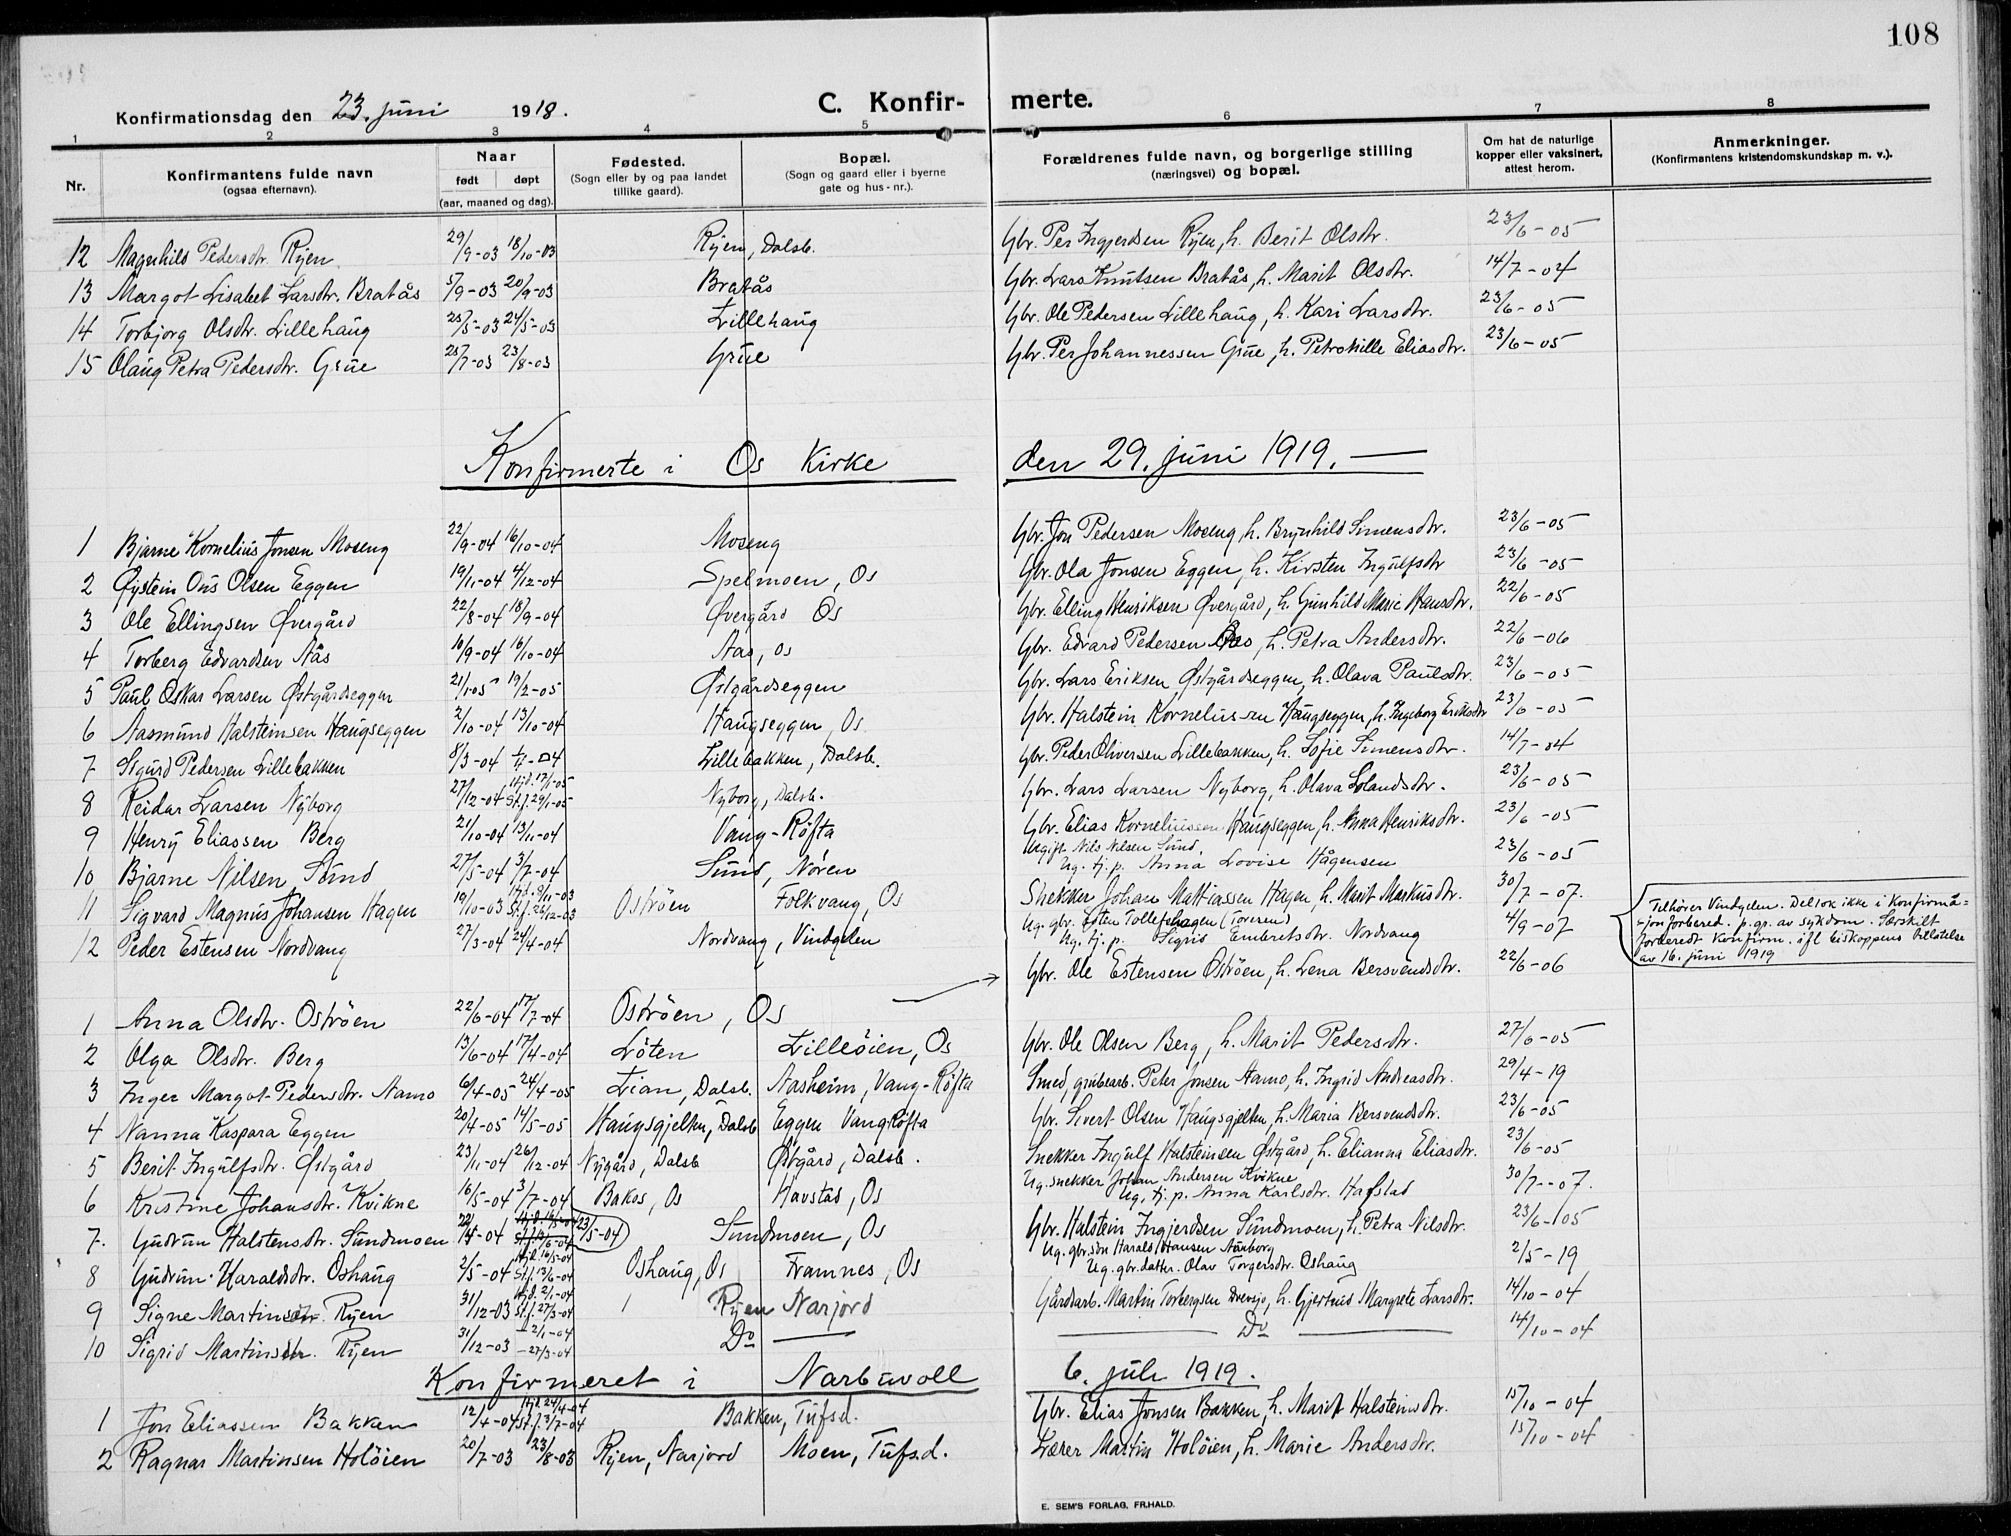 108
Konfirmationsdag den 23. juni 1918.
C. Konfir- merte.
1 2 3 4 5 6 7 8
Nr.
Konfirmantens fulde navn
(ogsaa efternavn).
Naar
født døpt
(aar, maaned og dag).
Fødested.
(Sogn eller by og paa landet
tillike gaard).
Bopæl.
(Sogn og gaard eller i byerne
gate og hus-nr.).
Forældrenes fulde navn, og borgerlige stilling
(næringsvei) og bopæl.
Om hat de naturlige
kopper eller vaksinert,
attest herom.
Anmerkninger.
(Konfirmantens kristendomskundskap m. v.).
12 Magnhild Pedersdtr. Rÿen 29/9-03 18/10-03 Rÿen, Dalsb. Gbr. Per Ingjerdsen Rÿen, h. Berit Olsdtr. 23/6-05
13 Margot Lisabet Larsdtr. Bratås 5/9-03 20/9-03 Bratås Gbr. Lars Knutsen Bratås, h. Marit Olsdtr. 14/7-04
14 Torbjørg Olsdtr. Lillehaug 25/5-03 24/5-03 Lillehaug Gbr. Ole Pedersen Lillehaug, h. Kari Larsdtr. 23/6-05
15 Olaug Petra Pedersdtr. Grue 25/7-03 23/8-03 Grue Gbr. Per Johannessen Grue, h. Petronille Eliasdtr. 23/6-05
Konfirmerte i Os Kirke den 29. juni 1919. —
1 Bjarne Kornelius Jonsen Moseng 22/9-04 16/10-04 Moseng Gbr. Jon Pedersen Moseng, h. Brÿnhild Simensdtr. 23/6-05
2 Øystein Ons Olsen Eggen 19/11-04 4/12-04 Spelmoen, Os Gbr. Ola Jonsen Eggen, h. Kirsten Ingulfsdtr 23/6-05
3 Ole Ellingsen Øvergård 22/8-04 18/9-04 Øvergård Os Gbr. Elling Henriksen Øvergård, h. Gunhild Marie Hansdtr. 22/6-05
4 Torberg Edvardsen Aås 10/9-04 16/10-04 Aas, Os Gbr. Edvard Pedersen Aas, h. Petra Andersdtr. 22/6-06
5 Paul Oskar Larsen Østgårdseggen 21/1-05 19/2-05 Østgårdseggen Gbr. Lars Eriksen Østgårdseggen, h. Olava Paulsdtr. 23/6-05
6 Aasmund Halsteinsen Haugseggen 2/10-04 13/10-04 Haugseggen, Os Gbr. Halstein Korneliussen Haugseggen, h. Ingeborg Eriksdtr 23/6-05
7 Sigurd Pedersen Lillebakken 8/3-04 Lillebakken, Dalsb. Gbr. Peder Oliversen Lillebakken, h. Sofie Simensdtr. 14/7-04
8 Reidar Larsen Nÿborg 27/12-04 Hjd. 17/1-05 St.f. 29/1-05 Nyborg, Dalsb. Gbr. Lars Larsen Nyborg, h. Olava Lolandsdtr. 23/6-05
9 Henrÿ Eliassen Berg 21/10-04 13/11-04 Vang-Røfta Gbr. Elias Korneliussen Haugseggen, h. Anna Henriksdtr. 23/6-05
10 Bjarne Nilsen Sund 27/5-04 3/7-04 Sund, Nören Ugift Nils Nilsen Sund,
Ug. tj. p. Anna Lovise Hågensen 23/6-05
11 Sigvard Magnus Johansen Hagen 19/10-03 Hjd. 9/11-03 St.f. 26/12-03 Oströen Folkvang, Os Snekker Johan Mattiassen Hagen, h. Marit Markusdtr. 30/7-07.
12 Peder Estensen Nordvang 27/3-04 24/4-04 Nordvang, Vindgelen Ug. gbr. Esten Tollefshagen (Toresen)
Ug. tj. p. Sigrid Embretsdtr. Nordvang 4/9-07
Tilhører Vindgelen. Deltok ikke i Konfirma=
=sjonsforbered. p. gr. av sykdom. Særskilt
forberedt Konfirm. ifl biskoppens tillatelse
av 16. juni 1919
1 Anna Olsdtr. Oströen 22/6-04 17/7-04 Oströen, Os Gbr. Ole Estensen Oströen, h. Lena Bersvendsdtr. 22/6-06
2 Olga Olsdtr. Berg 13/6-04 17/4-04 Löten Lilleöien, Os Gbr. Ole Olsen Berg, h. Marit Pedersdtr. 27/6-05
3 Inger Margot Pedersdtr. Aamo 6/4-05 24/4-05 Lian, Dalsb. Aasheim, Vang-Röfta Smed, grubearb. Peter Jonsen Aamo, h. Ingrid Andreasdtr. 29/4-19
4 Nanna Kaspara Eggen 20/4-05 14/5-05 Haugsgjelten, Dalsb Eggen Vangröfta Gbr. Sivert Olsen Haugsgjelten, h. Maria Bersvendsdtr. 23/6-05
5 Berit Ingulfsdtr. Østgård 23/11-04 26/12-04 Nÿgård, Dalsb Østgård, Dalsb. Snekker Ingulf Halsteinsen Østgård, h. Elianna Eliasdtr. 23/6-05
6 Kristine Johansdtr. Kvikne 16/5-04 3/7-04 Bakos, Os Havstad, Os Ug. snekker Johan Andersen Kvikne
Ug. tj. p. Anna Karlsdtr. Hafstad 30/7-07.
7. Gudrun Halstensdtr. Sundmoen 22/4-04 23/5-04 Sundmoen, Os Gbr. Halstein Ingjerdsen Sundmoen, h. Petra Nilsdtr. 23/6-05
8 Gudrun Haraldsdtr. Oshaug 2/5-04 Hjd. 16/5-04 St.f. 13/6-04 Oshaug, Os Framnes, Os Ug. gbr.søn Harald Hansen Aaborg
Ug. gbr.datter. Olav Torgersdtr. Oshaug 2/5-19
9 Signe Martinsdtr. Rÿen 31/12-03 Hjd. 2/1-04 St.f. 27/3-04 Rÿen Narjord Gårdsarb. Martin Torbergsen Dversjo, h. Gjertrud Margrete Larsdtr. 14/10-04
10 Sigrid Martinsdtr. Rÿen 31/12-03 -2/1-04 -27/3-04 Do — Do — 14/10-04
Konfirmeret i Narbuvoll 6. juli 1919.
1 Jon Eliassen Bakken 12/4-04 Hjd. 24/4-04 St.f. 3/7-04 Bakken, Tufsd. Gbr. Elias Jonsen Bakken, h. Marit Halsteinsdtr. 15/10-04
2 Ragnar Martinsen Holöien 20/7-03 23/8-03 Rÿen, Narjord Moen, Tufsd. Lærer Martin Holöien, h. Marie Andersdtr. 15/10-04
E. SEM'S FORLAG, FR.HALD.